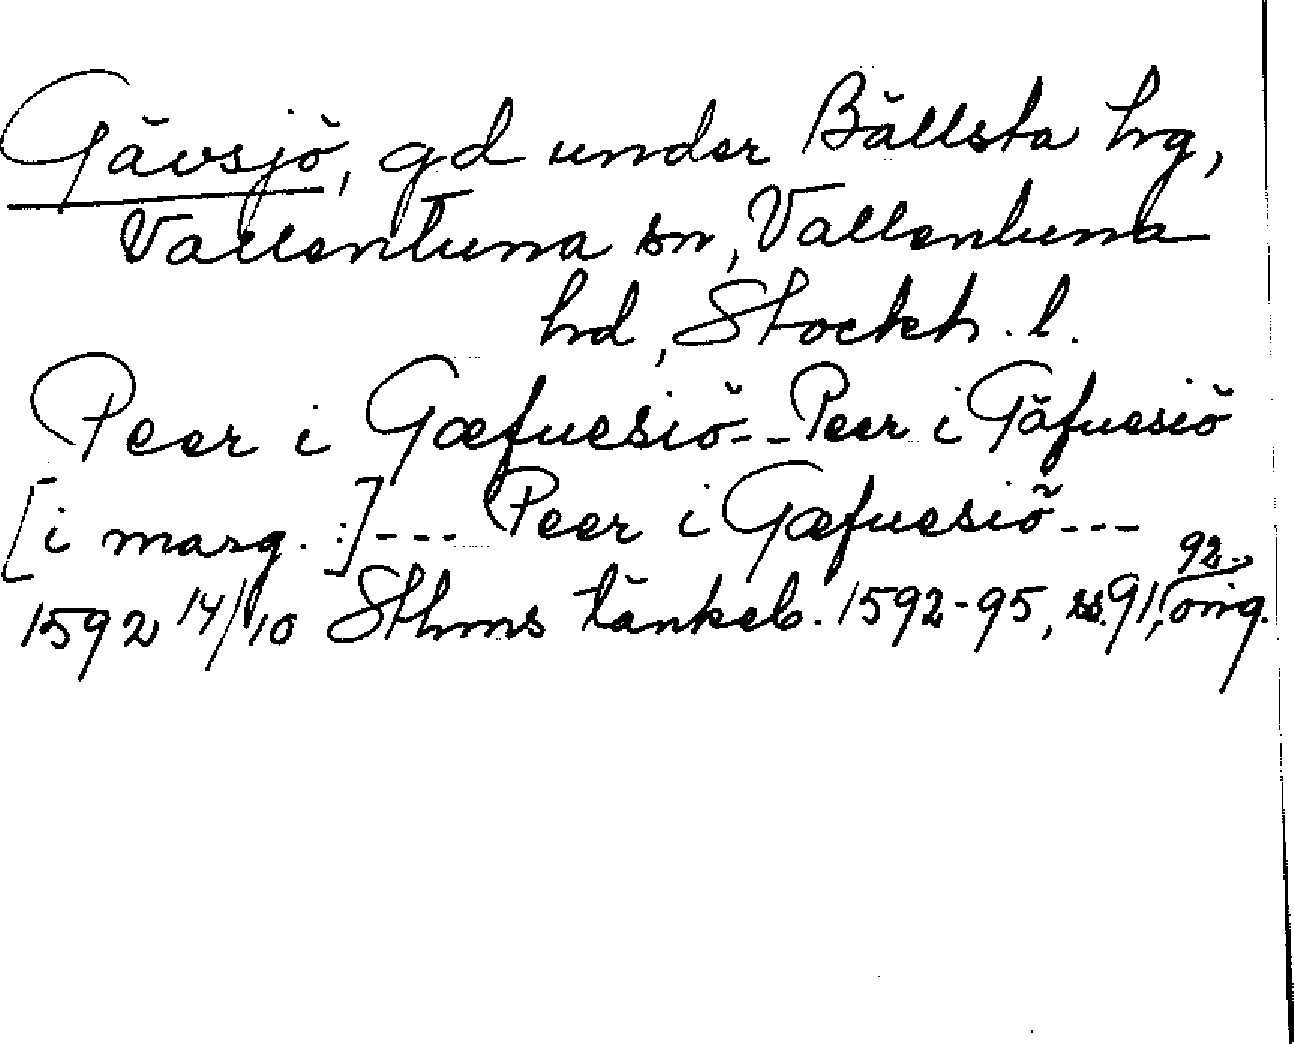 Gävsjö, gd under Bällsta hrg,
Vallentuna sn, Vallentuna
hrd, Stockh. l.
Peer i Gæfuesiö -- Peer i Gäfuesiö
[i marg.:] --- Peer i Gæfuesiö ---
1592 14/10 Sthms tänkeb. 1592-95, ss. 91, 92, orig.